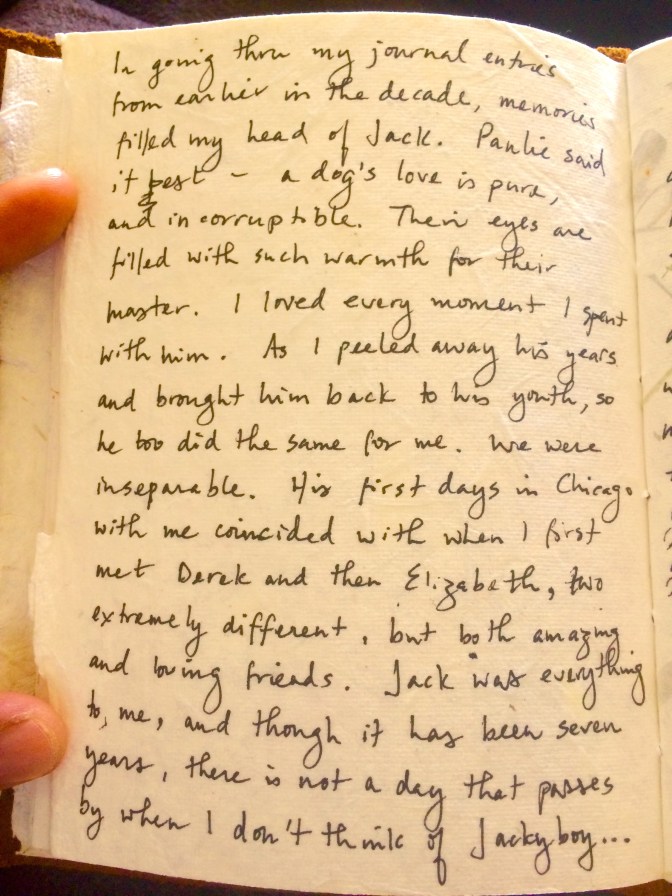 In going thru my journal entries
from earlier in the decade, memories
filled my head of Jack. Paulie said
it best - a dog's love is pure,
and incorruptible. Their eyes are
filled with such warmth for their
master. I loved every moment I spent
with him. As I peeled away his years
and brought him back to his youth, so
he too did the same for me. We were
inseparable. His first days in Chicago
with me coincided with when I first
met Derek and then Elizabeth, two
extremely different, but both amazing
and loving friends. Jack was everything
to, me, and though it has been seven
years, there is not a day that passes
by when I don't think of Jackyboy...